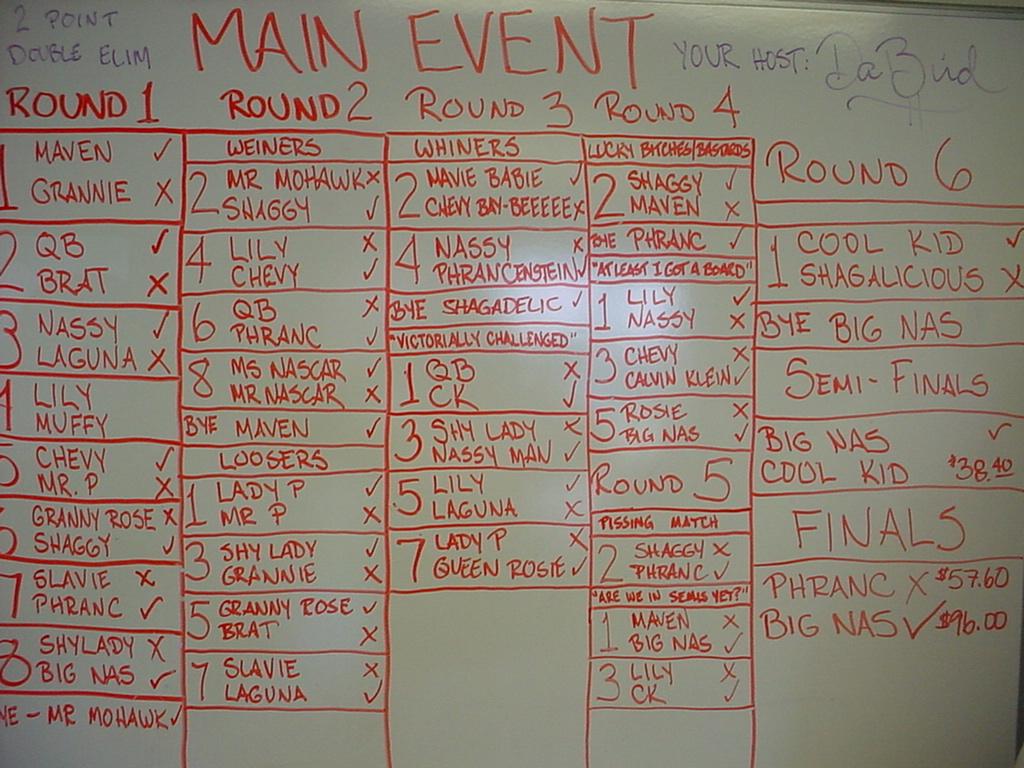 2 POINT
DOUBLE ELIM
MAIN EVENT
YOUR HOST: Da Bird
ROUND 1
1 MAVEN ✓
GRANNIE X
2 QB ✓
BRAT X
3 NASSY ✓
LAGUNA X
4 LILY
MUFFY
5 CHEVY ✓
MR. P X
6 GRANNY ROSE X
SHAGGY ✓
7 SLAVIE X
PHRANC ✓
8 SHYLADY X
BIG NAS ✓
YE - MR MOHAWK ✓
ROUND 2
WEINERS
2 MR MOHAWK X
SHAGGY ✓
4 LILY X
CHEVY ✓
6 QB X
PHRANC ✓
8 MS NASCAR ✓
MR NASCAR X
BYE MAVEN ✓
LOOSERS
1 LADY P ✓
MR P X
3 SHY LADY ✓
GRANNIE X
5 GRANNY ROSE ✓
BRAT X
7 SLAVIE X
LAGUNA ✓
ROUND 3
WHINERS
2 MAVIE BABIE ✓
CHEVY BAY-BEEEEE X
4 NASSY X
PHRANCENSTEIN ✓
BYE SHAGADELIC ✓
"VICTORIALLY CHALLENGED"
1 QB X
CK ✓
3 SHY LADY X
NASSY MAN ✓
5 LILY ✓
LAGUNA X
7 LADY P X
QUEEN ROSIE ✓
ROUND 4
LUCKY BITCHES/BASTARDS
2 SHAGGY ✓
MAVEN X
BYE PHRANC ✓
"AT LEAST I GOT A BOARD"
1 LILY ✓
NASSY X
3 CHEVY X
CALVIN KLEIN ✓
5 ROSIE X
BIG NAS ✓
ROUND 5
PISSING MATCH
2 SHAGGY X
PHRANC ✓
"ARE WE IN SEMIS YET?"
1 MAVEN X
BIG NAS ✓
3 LILY X
CK ✓
ROUND 6
1 COOL KID ✓
SHAGALICIOUS X
BYE BIG NAS
SEMI-FINALS
BIG NAS ✓
COOL KID $38.40
FINALS
PHRANC X $57.60
BIG NAS ✓ $96.00